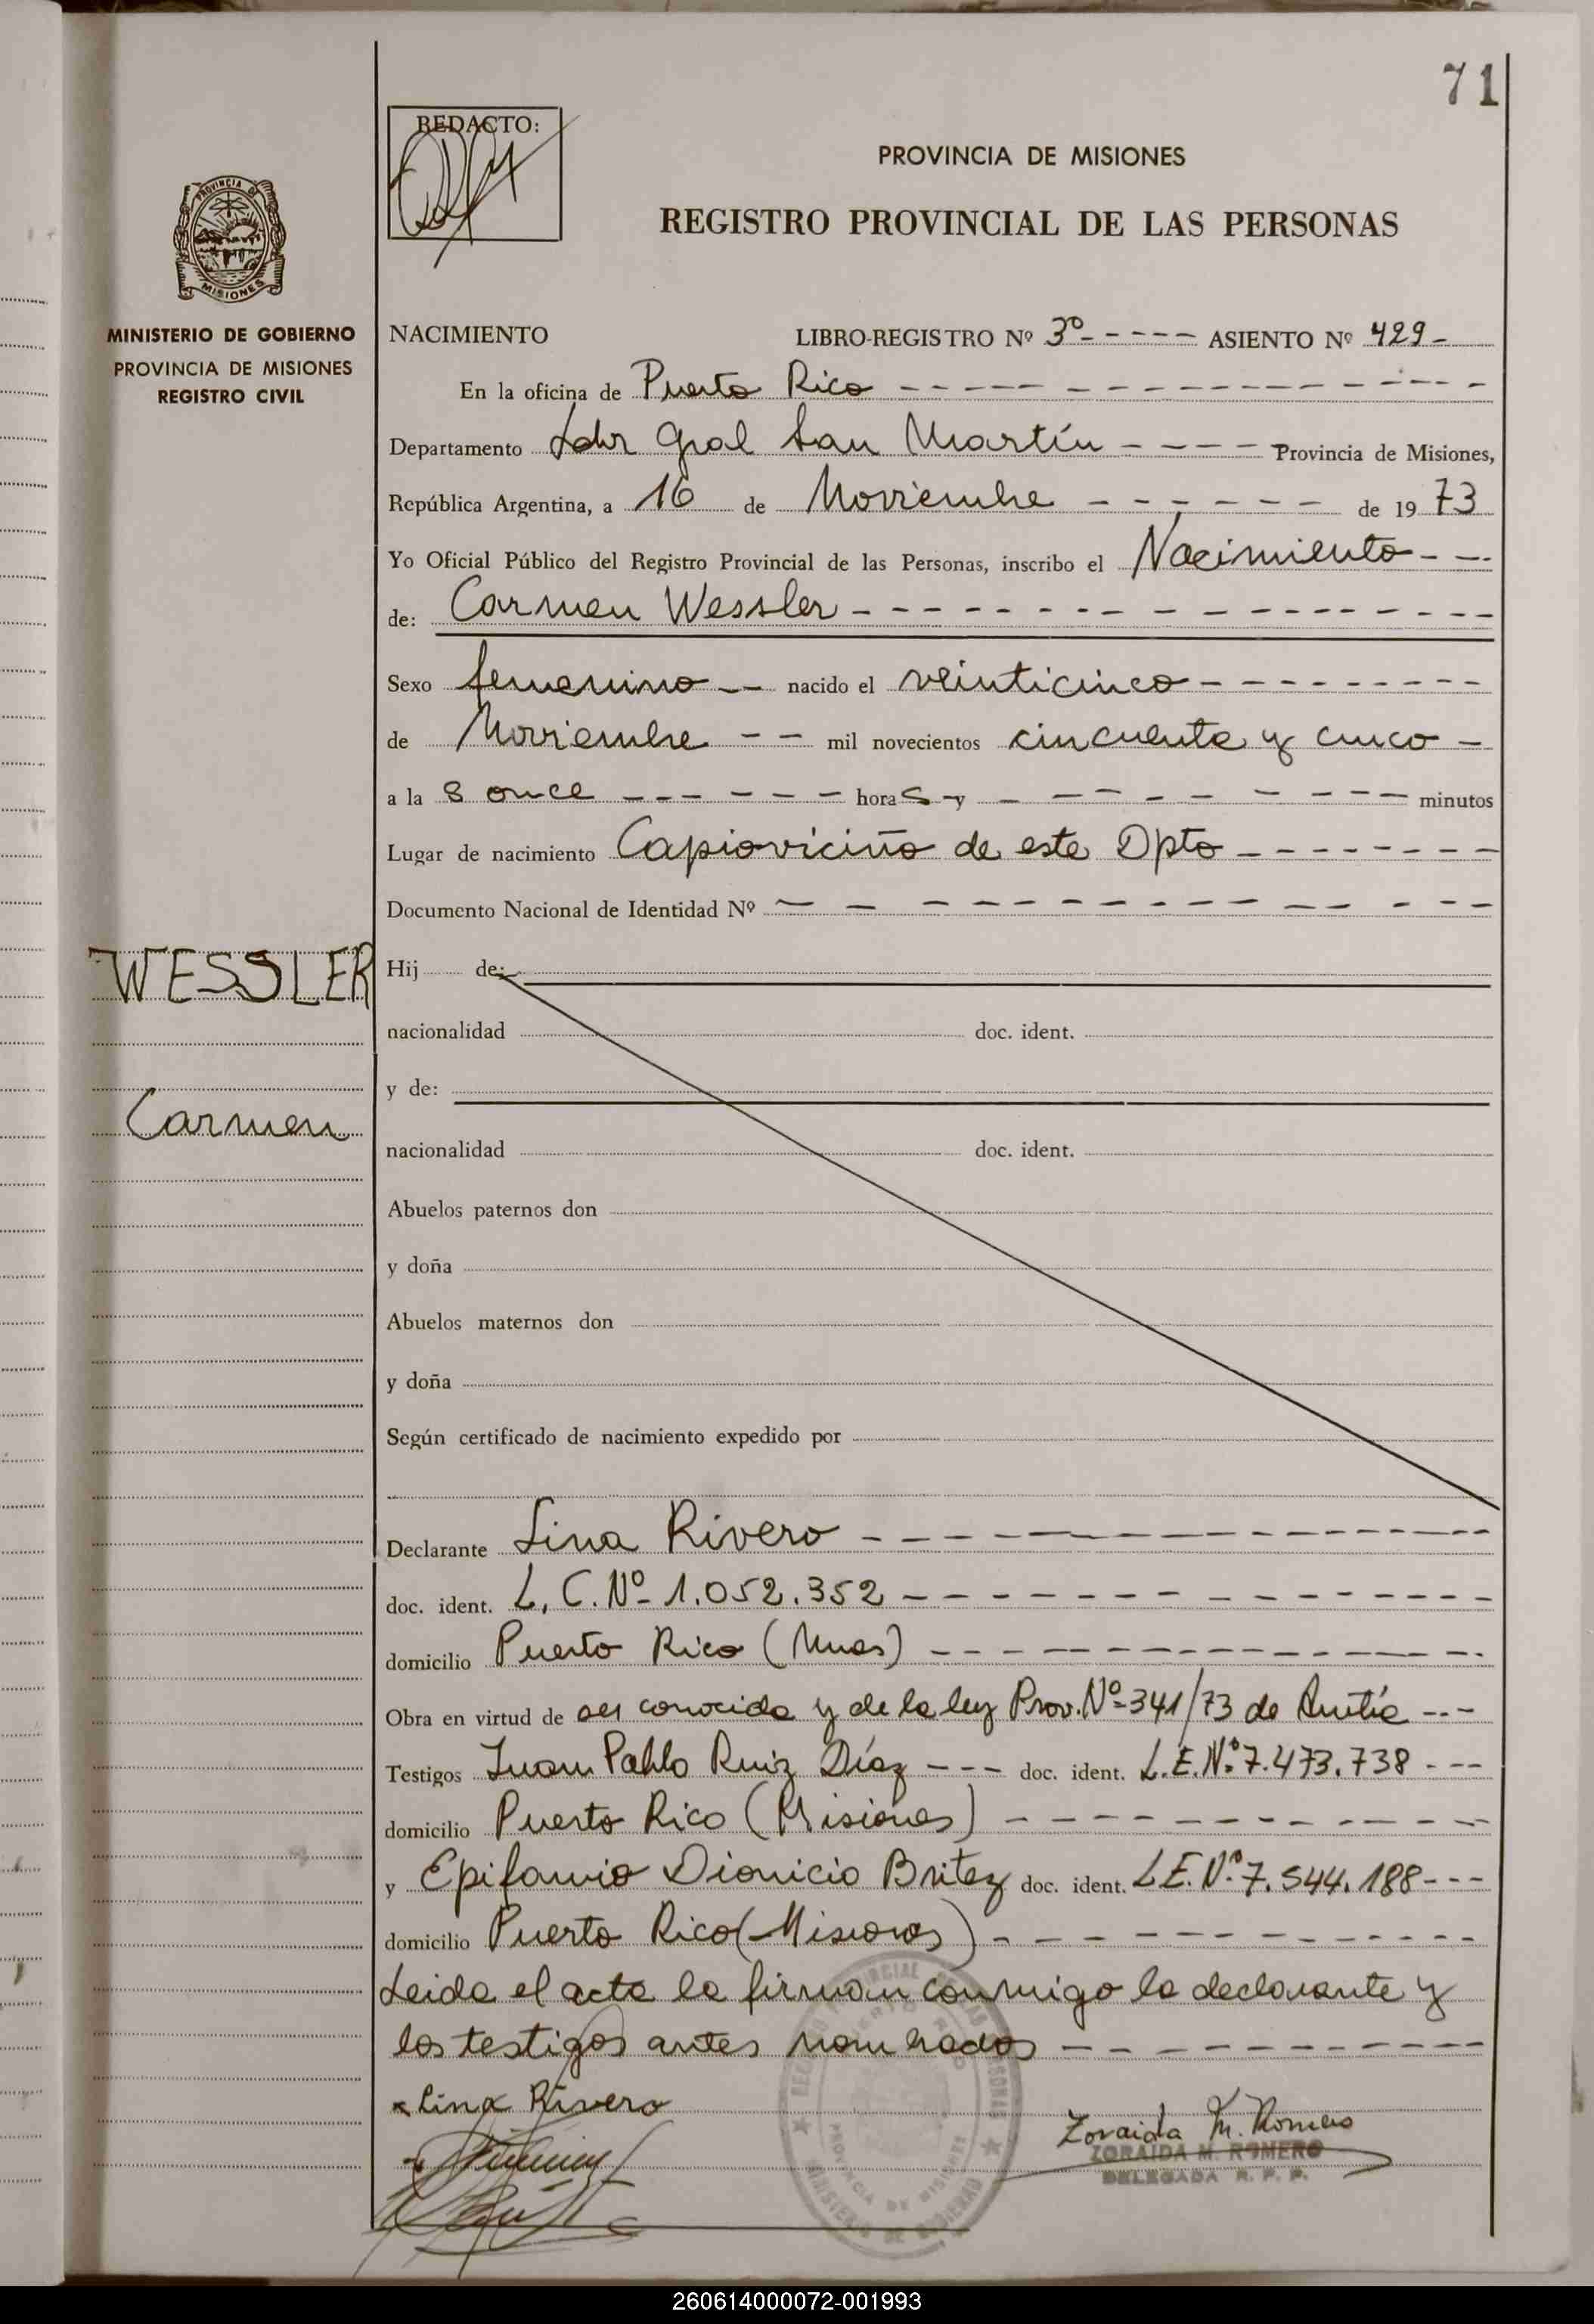 71
REDACTO:
PROVINCIA DE MISIONES
REGISTRO PROVINCIAL DE LAS PERSONAS
PROVINCIA DE
MISIONES
MINISTERIO DE GOBIERNO
PROVINCIA DE MISIONES
REGISTRO CIVIL
NACIMIENTO LIBRO-REGISTRO Nº 3º - - - - - ASIENTO Nº 429 -
En la oficina de Puerto Rico - - - - -
Departamento Ldor Gral San Martín - - - - - Provincia de Misiones,
República Argentina, a 16 de Noviembre - - - - - - de 1973
Yo Oficial Público del Registro Provincial de las Personas, inscribo el Nacimiento - -
de: Carmen Wessler - - - - -
Sexo femenino - - nacido el veinticinco - - - - -
de Noviembre - - mil novecientos cincuenta y cinco -
a las once - - - - - - horas y - - - - - minutos
Lugar de nacimiento Capioviciño de este Dpto - - - - -
Documento Nacional de Identidad Nº - - - - -
WESSLER
Carmen
Hij de:
nacionalidad doc. ident.
y de:
nacionalidad doc. ident.
Abuelos paternos don
y doña
Abuelos maternos don
y doña
Según certificado de nacimiento expedido por
Declarante Lina Rivero - - - - -
doc. ident. L. C. Nº - 1.052.352 - - - - -
domicilio Puerto Rico (Mnes) - - - - -
Obra en virtud de ser conocida y de la ley Prov. Nº 341/73 de - - -
Testigos Juan Pablo Ruiz Díaz - - - doc. ident. L.E.Nº 7.473.738 - - -
domicilio Puerto Rico (Misiones) - - - - -
y Epifanio Dionicio Britez doc. ident. L.E.Nº 7.544.188 - - -
domicilio Puerto Rico (Misiones) - - - - -
Leida el acta la firman conmigo la declarante y
los testigos antes nombrados - - - - -
Lina Rivero
Zoraida M. Romero
ZORAIDA M. ROMERO
DELEGADA R. P. P.
PROVINCIA DE MISIONES
MINISTERIO DE GOBIERNO
260614000072-001993